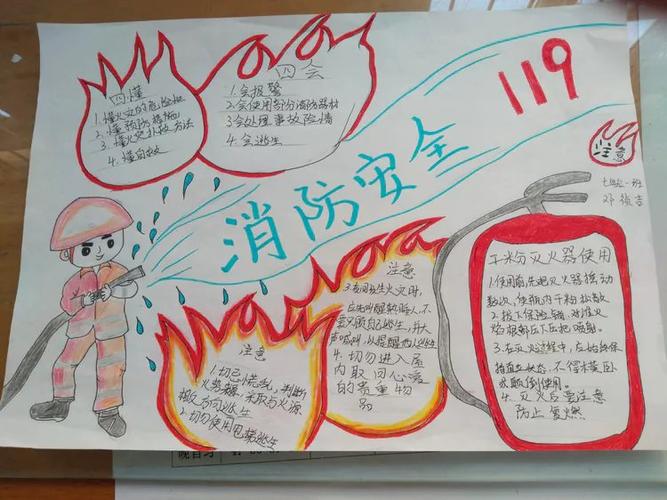 四懂
1.懂火灾的危险性
2.懂预防措施
3.懂火灾扑救方法
4.懂自救
四会
1.会报警
2.会使用部分消防器材
3.会处理事故险情
4.会逃生
119
消防安全
注意
七年级一班
注意
1.切忌慌乱,判断
火势来源,采取与火源
相反方向逃生
2.切勿使用电梯逃生
注意
3.夜间发生火灾时,
应先叫醒熟睡人,不
要只顾自己逃生,并大
声喊叫,以提醒他人逃生
4.切勿进入屋
内取回心爱
的贵重物
品
干粉灭火器使用
1.使用前,先把灭火器摇动
数次,使瓶内干粉松散
2.拔下保险销,对准火
焰根部压下压把喷射。
3.在灭火过程中,应始终保
持直立状态,不得横卧
或颠倒使用。
4.灭火后要注意
防止复燃
晚自习